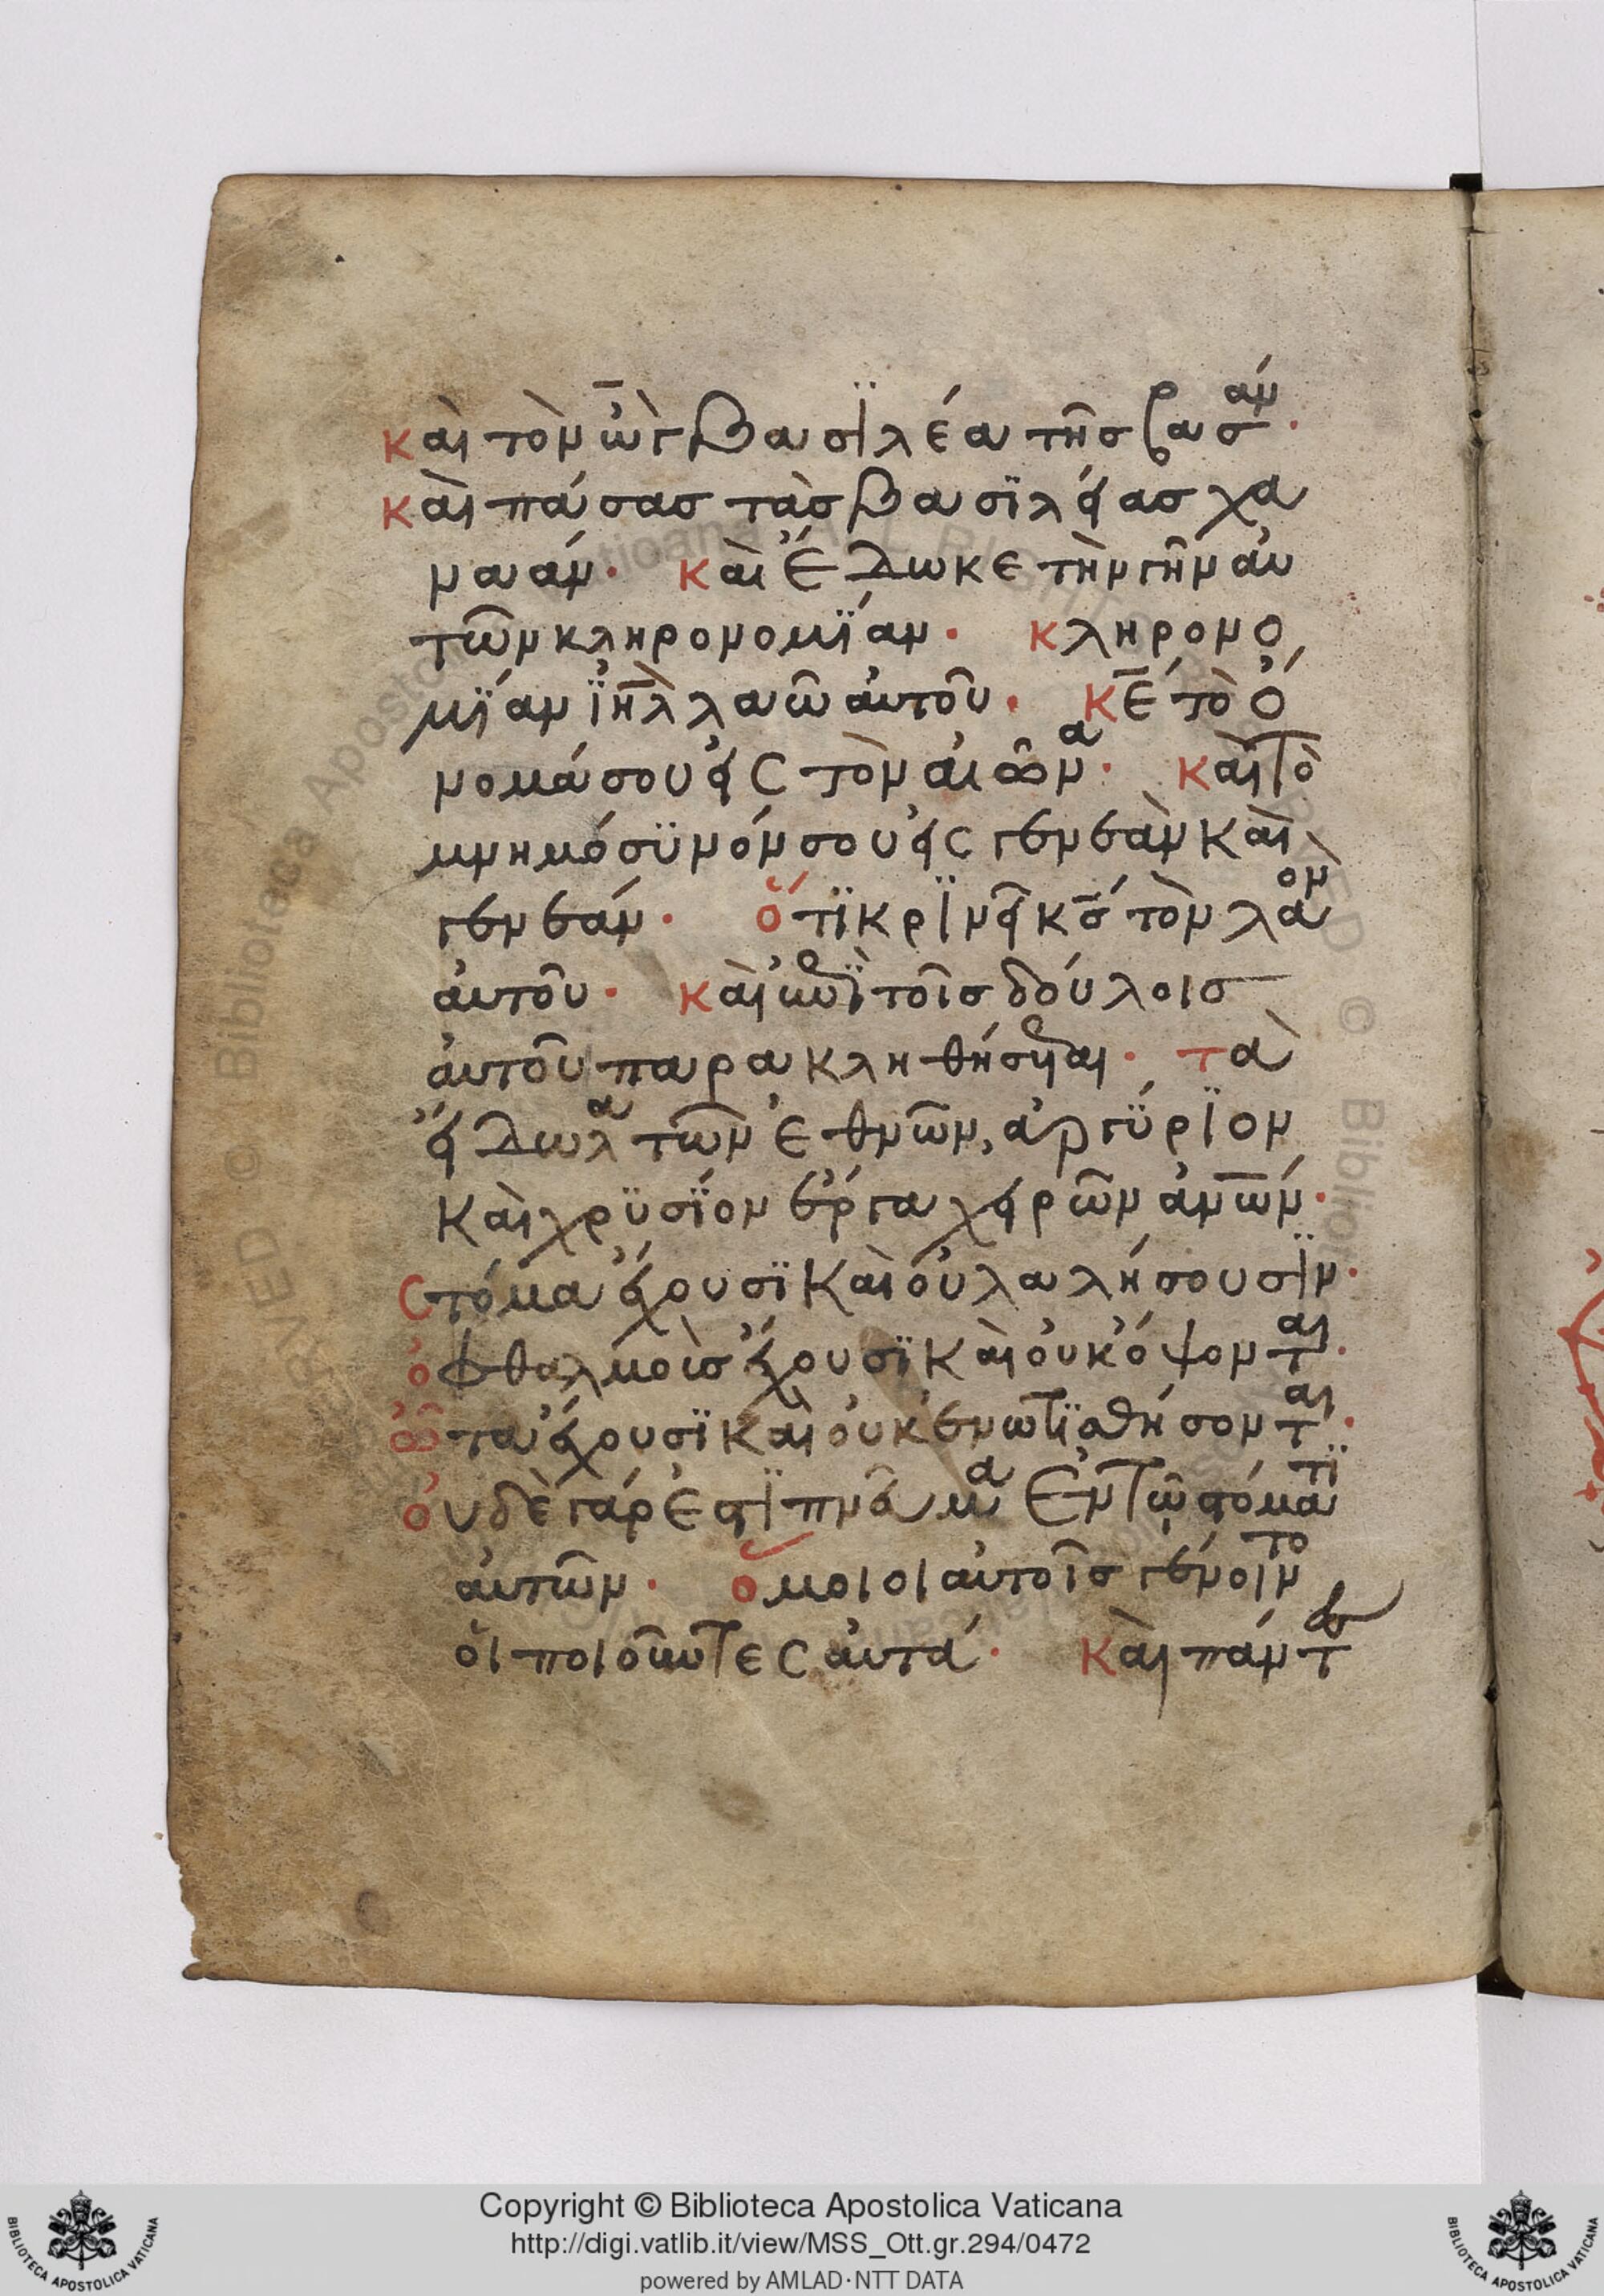 καὶ τὸν ὢγ βασϊλέα τῆσ βασάν·
καὶ πάσασ τὰσ βασϊλείασ χα
νααν· καὶ ἔδωκε τὴν γῆν αὐ
τῶν κληρονομΐαν· κληρονο
μΐαν ϊη̅λ λαῶ αὐτοῦ· κε̅ τὸ ὄ
νομά σου εἰς τὸν αἰῶνα· καὶ τὸ
μνημόσϋνόν σου εἰς γενεὰν καὶ
γενεάν· ὅτϊ κρϊνεῖ κσ̅ τὸν λαὸν
αὐτοῦ· καὶ ἐπῒ τοῖσ δούλοισ
αὐτοῦ παρακληθήσεται· τὰ
εἴδωλα τῶν ἐθνῶν, ἀργΰρϊον
καὶ χρϋσΐον ἔργα χειρῶν ἀν̅ω̅ν·
Στόμα ἔχουσϊ καὶ οὐ λαλήσουσϊν·
ὀφθαλμοὶσ ἔχουσϊ καὶ οὐκ ὄψονται·
ὦτα ἔχουσϊ καὶ οὐκ ἐνωτϊσθήσονται·
οὐδὲ γάρ ἐστϊ πνα̅ ἐν τῶ στόματϊ
αὐτῶν· ὅμοιοι αὐτοῖσ γένοιντο
οἱ ποιοῦντες αὐτά· καὶ πάντες
Copyright © Biblioteca Apostolica Vaticana
http://digi.vatlib.it/view/MSS_Ott.gr.294/0472
powered by AMLAD·NTT DATA